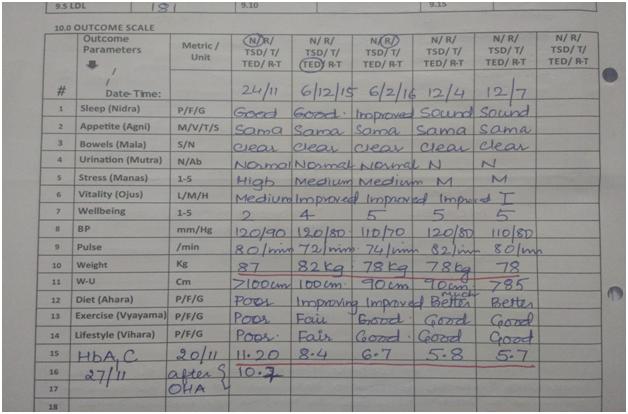 9.5 LDL 181 9.10 9.15
10.0 OUTCOME SCALE
Outcome Parameters Metric / Unit N/ R/ TSD/ T/ TED/ R-T N/ R/ TSD/ T/ TED/ R-T N/ R/ TSD/ T/ TED/ R-T N/ R/ TSD/ T/ TED/ R-T N/ R/ TSD/ T/ TED/ R-T N/ R/ TSD/ T/ TED/ R-T
# Date-Time: 24/11 6/12/15 6/2/16 12/4 12/7
1 Sleep (Nidra) P/F/G Good Good. Improved Sound Sound
2 Appetite (Agni) M/V/T/S Sama Sama Sama Sama Sama
3 Bowels (Mala) S/N clear clear clear clear clear
4 Urination (Mutra) N/Ab Normal Normal Normal N N
5 Stress (Manas) 1-5 High Medium Medium M M
6 Vitality (Ojus) L/M/H Medium Improved Improved Improved I
7 Wellbeing 1-5 2 4 5 5 5
8 BP mm/Hg 120/90 120/80 110/70 120/80 110/80
9 Pulse /min 80/min 72/min 74/min 82/min 80/min
10 Weight Kg 87 82kg 78kg 78kg 78
11 W-U Cm >100cm 100cm 90cm 90cm 785
12 Diet (Ahara) P/F/G Poor Improving Improved Much Better Better
13 Exercise (Vyayama) P/F/G Poor Fair Good. Good Good
14 Lifestyle (Vihara) P/F/G Poor. Fair Good. Good Good
15 HbA1C 20/11 11.20 8.4 6.7 5.8 5.7
16 27/11 after OHA 10.7
17
18